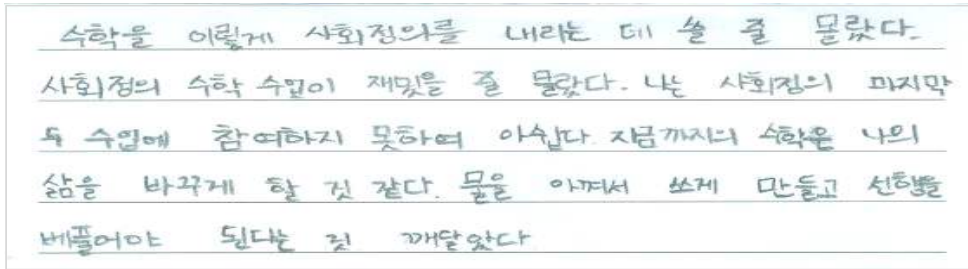 수학을 이렇게 사회정의를 내리는 데 쓸 줄 몰랐다.
사회정의 수학 수업이 재밌을 줄 몰랐다. 나는 사회정의 마지막
두 수업에 참여하지 못하여 아쉽다. 지금까지의 수학은 나의
삶을 바꾸게 할 것 같다. 물을 아껴서 쓰게 만들고 선행을
베풀어야 된다는 걸 깨달았다